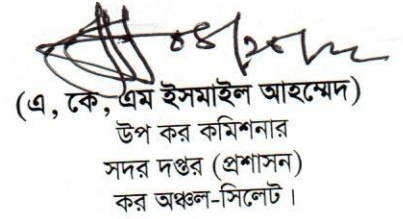 (এ, কে, এম ইসমাইল আহম্মেদ)
উপ কর কমিশনার
সদর দপ্তর (প্রশাসন)
কর অঞ্চল-সিলেট।